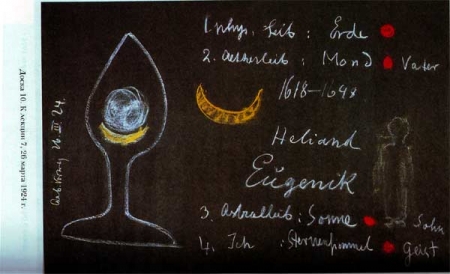 Доска 10. К лекции 7, 26 марта 1924 г.
26 III. 24.
1. phys. Leib : Erde
2. Aetherleib : Mond Vater
1618-1648
Heliand
Eugenik
3. Astralleib : Sonne Sohn
4. Ich : Sternenhimmel Geist